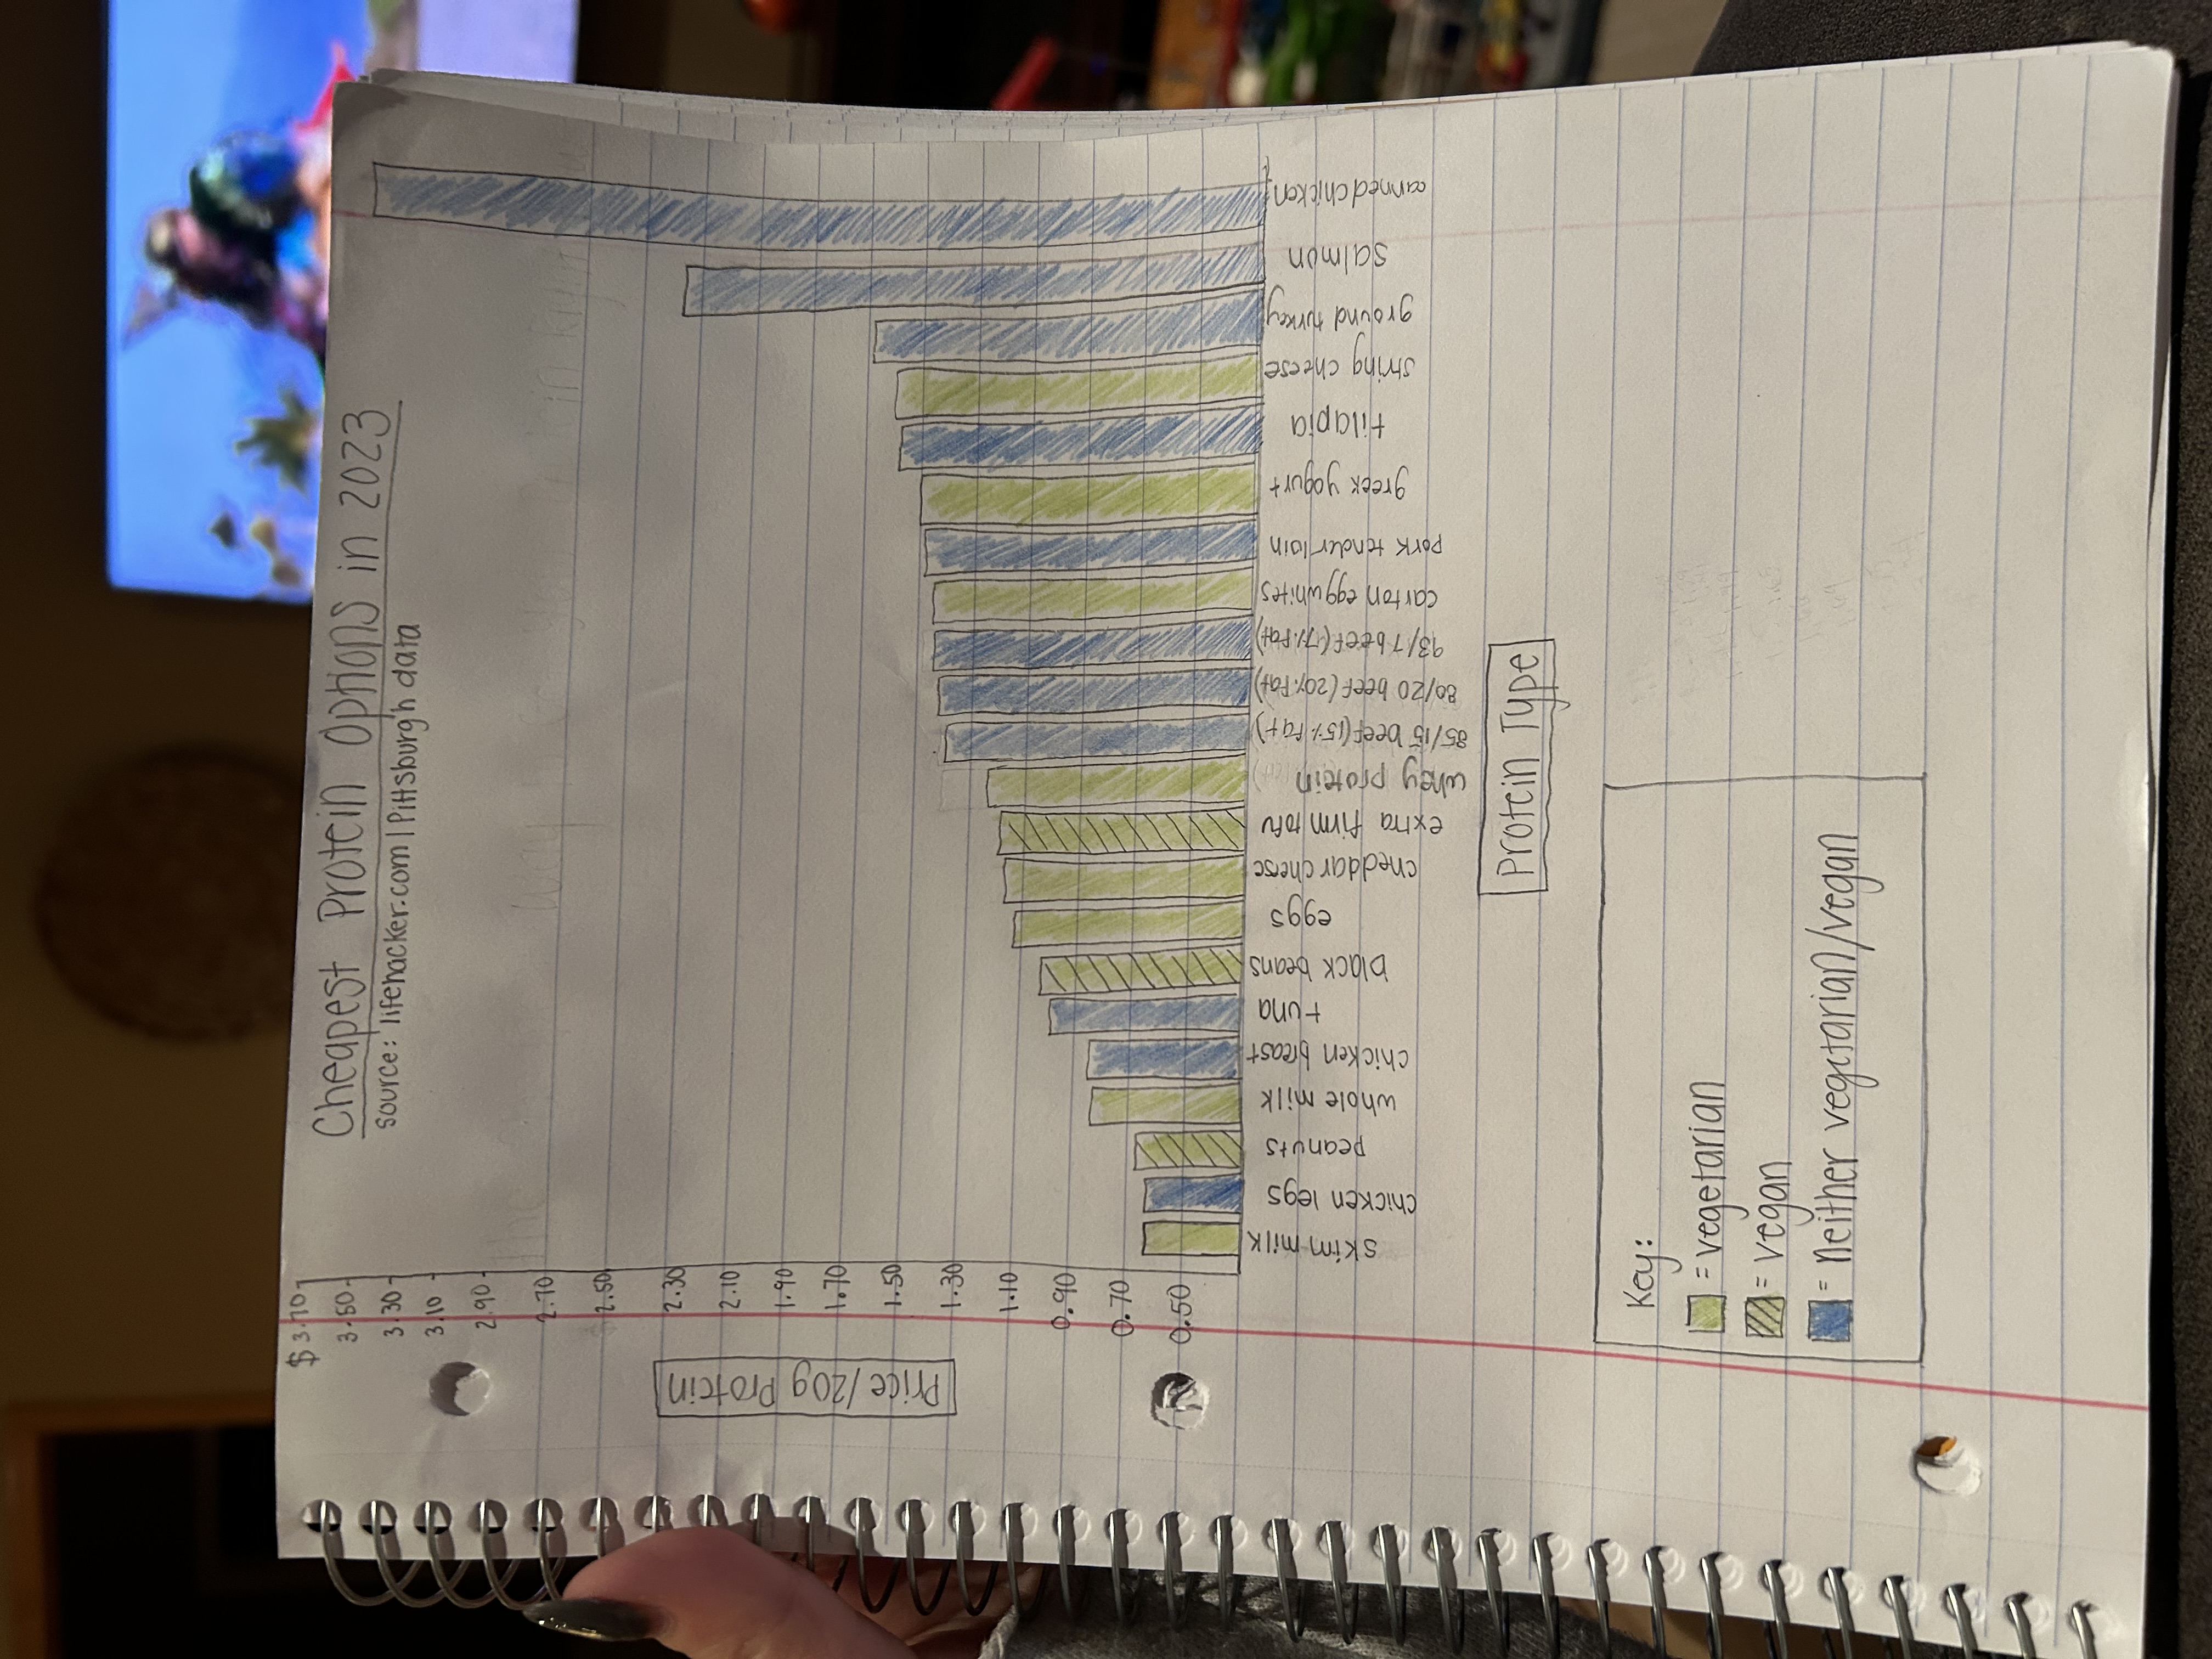 Cheapest Protein Options in 2023
source: lifehacker.com | Pittsburgh data
$ 3.70
3.50
3.30
3.10
2.90
2.70
2.50
2.30
2.10
1.90
1.70
1.50
1.30
1.10
0.90
0.70
0.50
Price/20g Protein
skim milk
chicken legs
peanuts
whole milk
chicken breast
tuna
black beans
eggs
cheddar cheese
extra firm tofu
whey protein
85/15 beef (15% fat)
80/20 beef (20% fat)
93/7 beef (7% fat)
carton egg whites
pork tenderloin
greek yogurt
tilapia
string cheese
ground turkey
salmon
canned chicken
Protein Type
Key:
= vegetarian
= vegan
= neither vegetarian/vegan